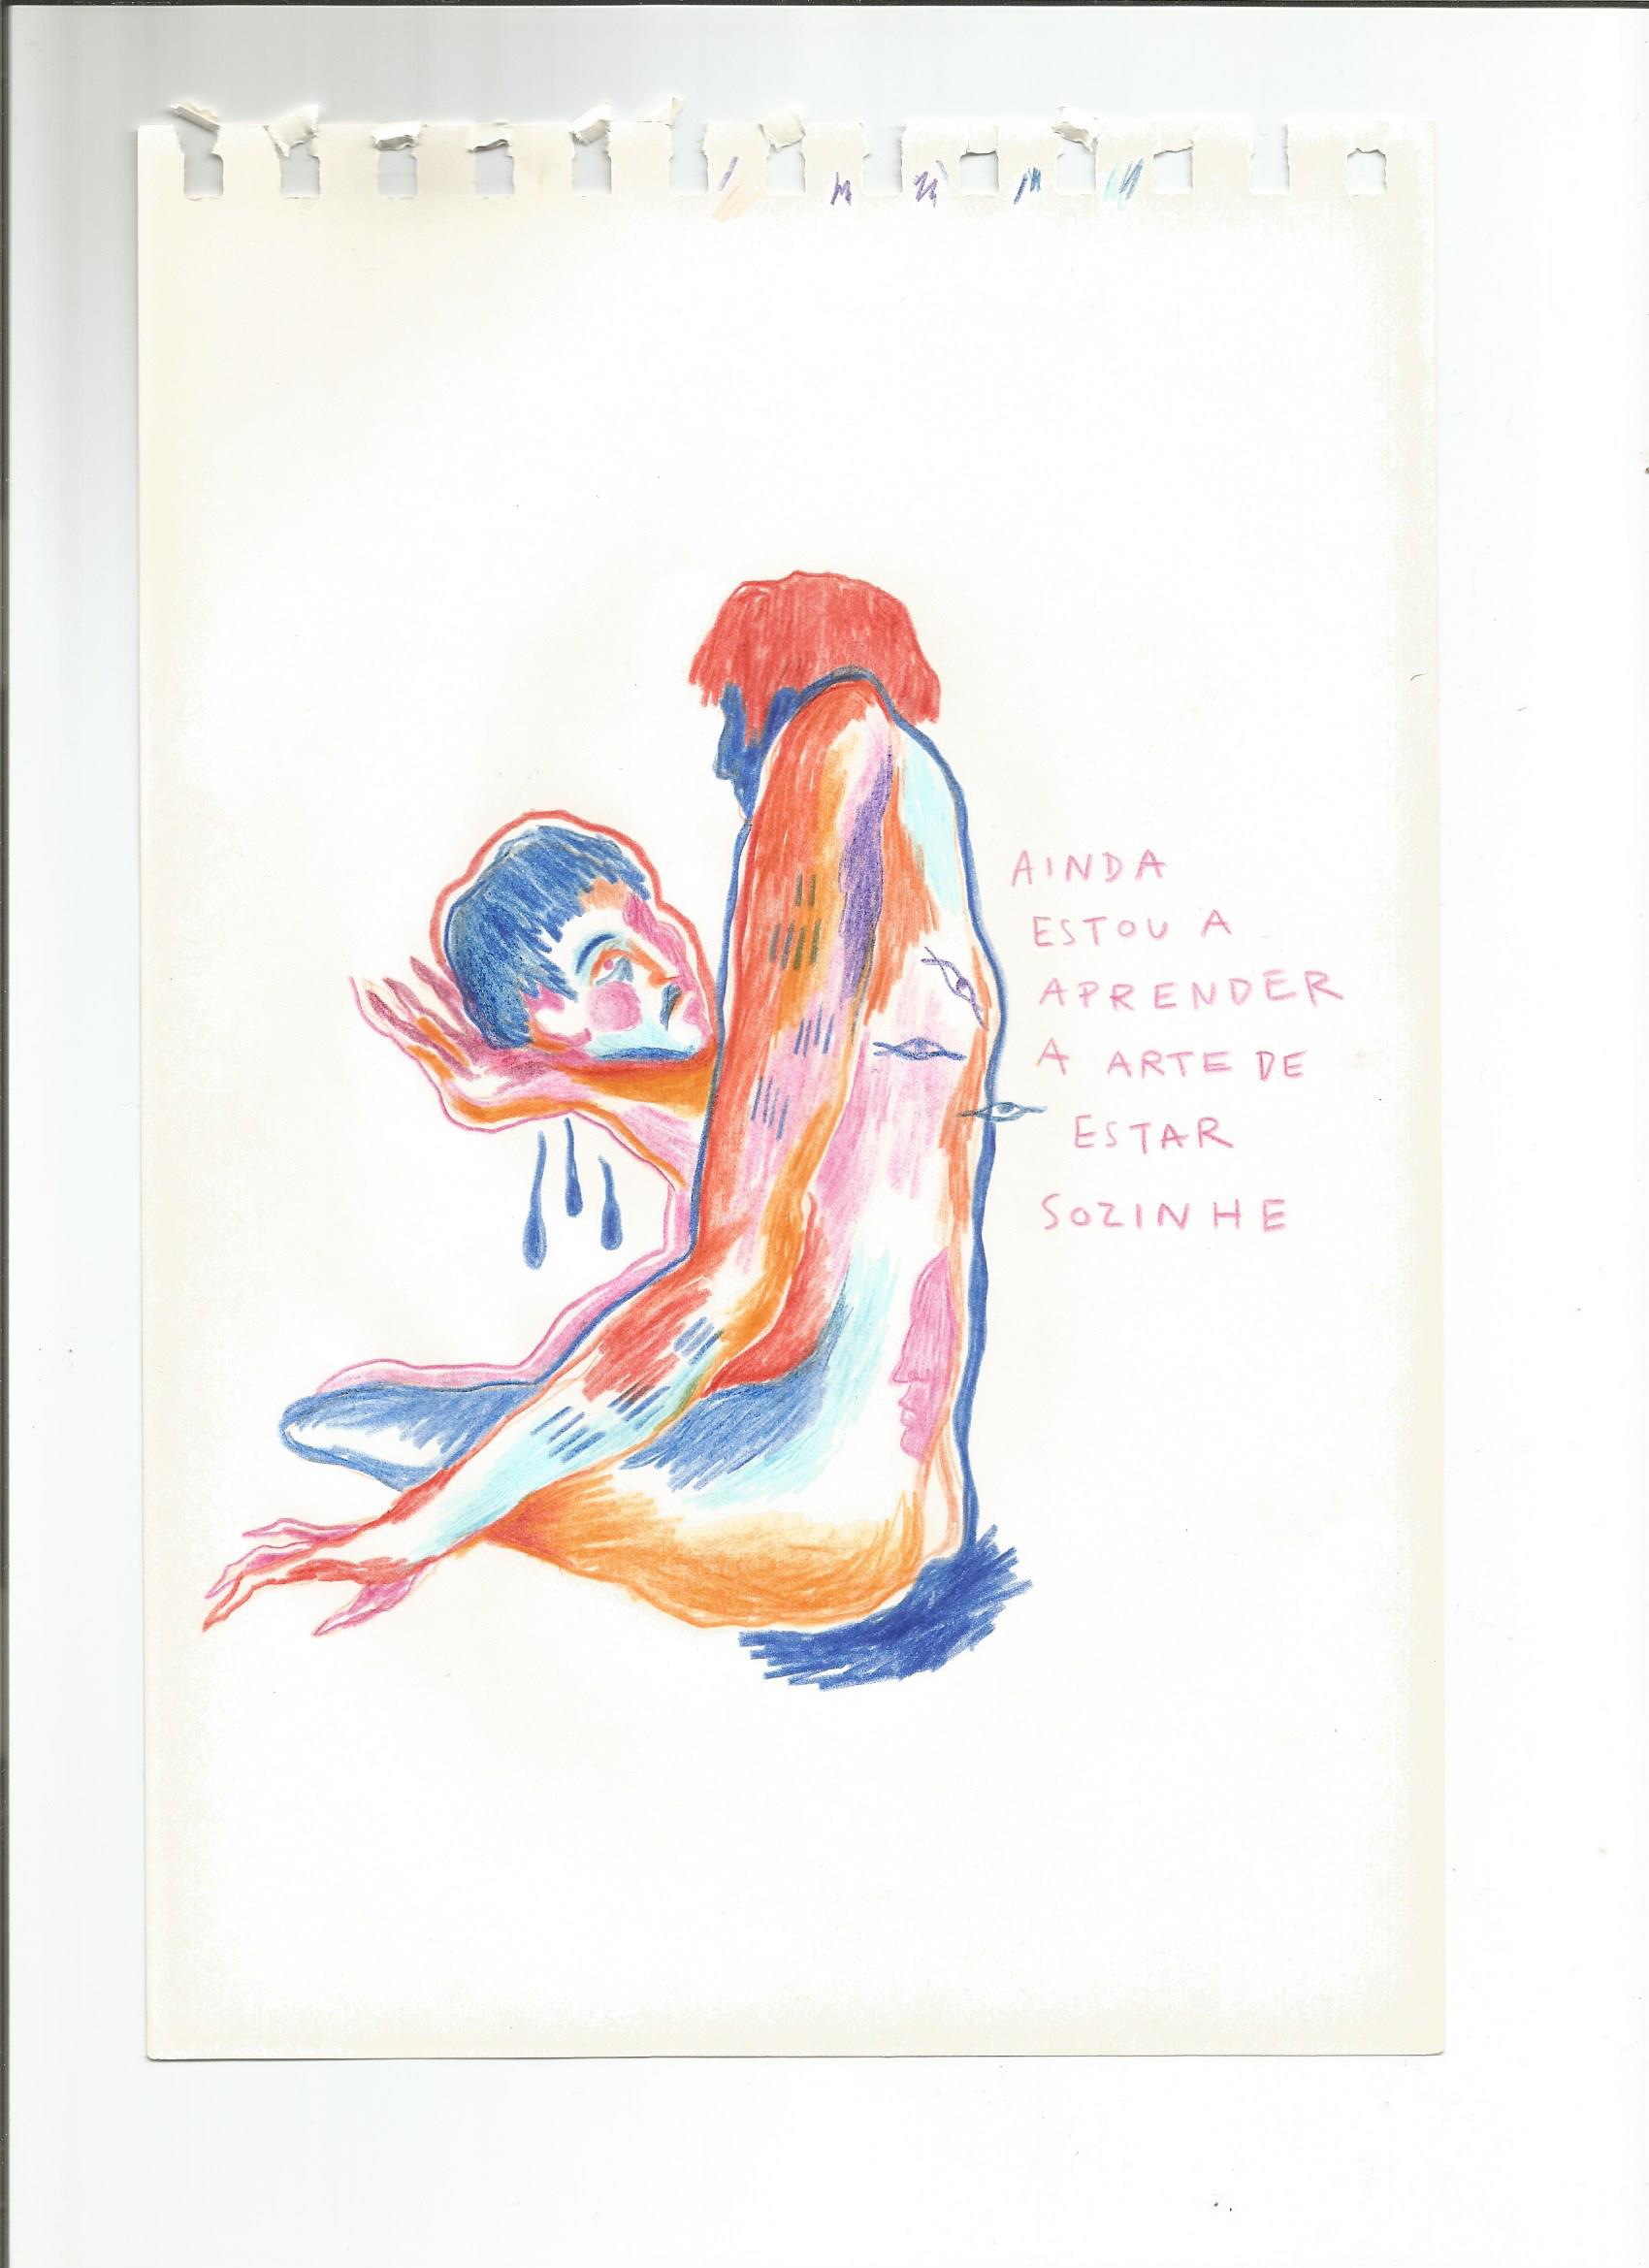 AINDA
ESTOU A
APRENDER
A ARTE DE
ESTAR
SOZINHE